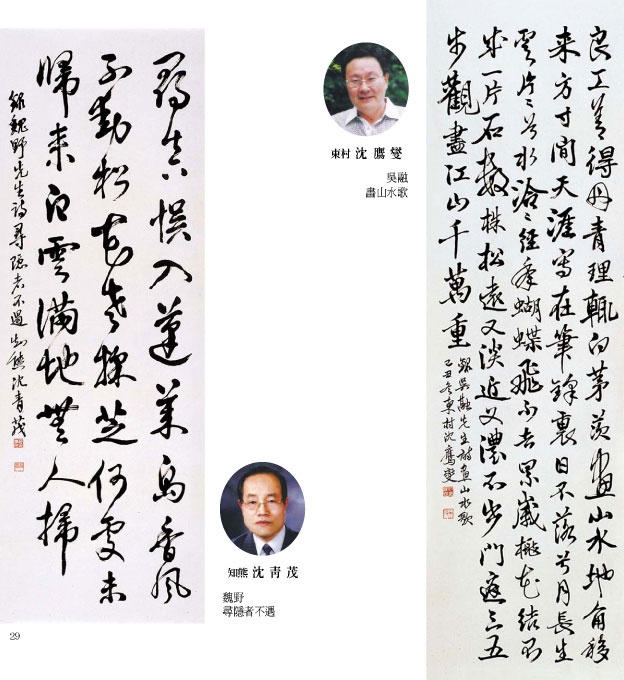 良工善得丹青理輒向茅茨畫山水地角移
来方寸間天涯寫在筆鋒裏日不落兮月長生
雲片〻兮水泠〻經年蝴蝶飛不去累歲桃花結不
成一片石數株松遠又淡近又濃不出門庭三五
步觀盡江山千萬重
錄吳融先生詩畫山水歌
己丑冬東村沈鷹燮
東村 沈鷹燮
吳融
畵山水歌
尋真悞入蓬萊島香風
不動松花老採芝何處未
歸来白雲滿地無人掃
錄魏野先生詩尋隱者不遇知熊沈青茂
知熊 沈靑茂
魏野
尋隱者不遇
29